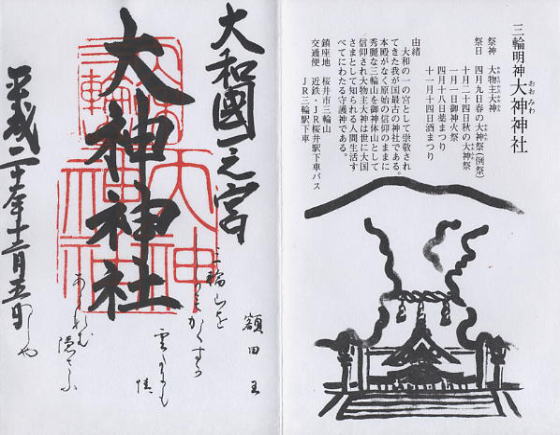 三輪明神 大神神社
おおみわ
祭神 大物主大神
祭日 四月九日春の大神祭(例祭)
十月二十四日秋の大神祭
一月一日御神火祭
四月十八日薬まつり
十一月十四日酒まつり
由緒
大和の一の宮として崇敬され
てきた我が国最古の神社である。
本殿がなく原始の信仰のままに
秀麗な三輪山を御神体山として
信仰され大物主大神は世に大国
さまとして知られる人間生活す
べてにわたる守護神である。
鎮座地 桜井市三輪山
交通便 近鉄・JR桜井駅下車バス
JR三輪駅下車
大和國一之宮
大神神社
平成二十年十二月五日
額田王
三輪山を
しかもかくすか
雲だにも
情
あらなむ
隠さふ
べしや